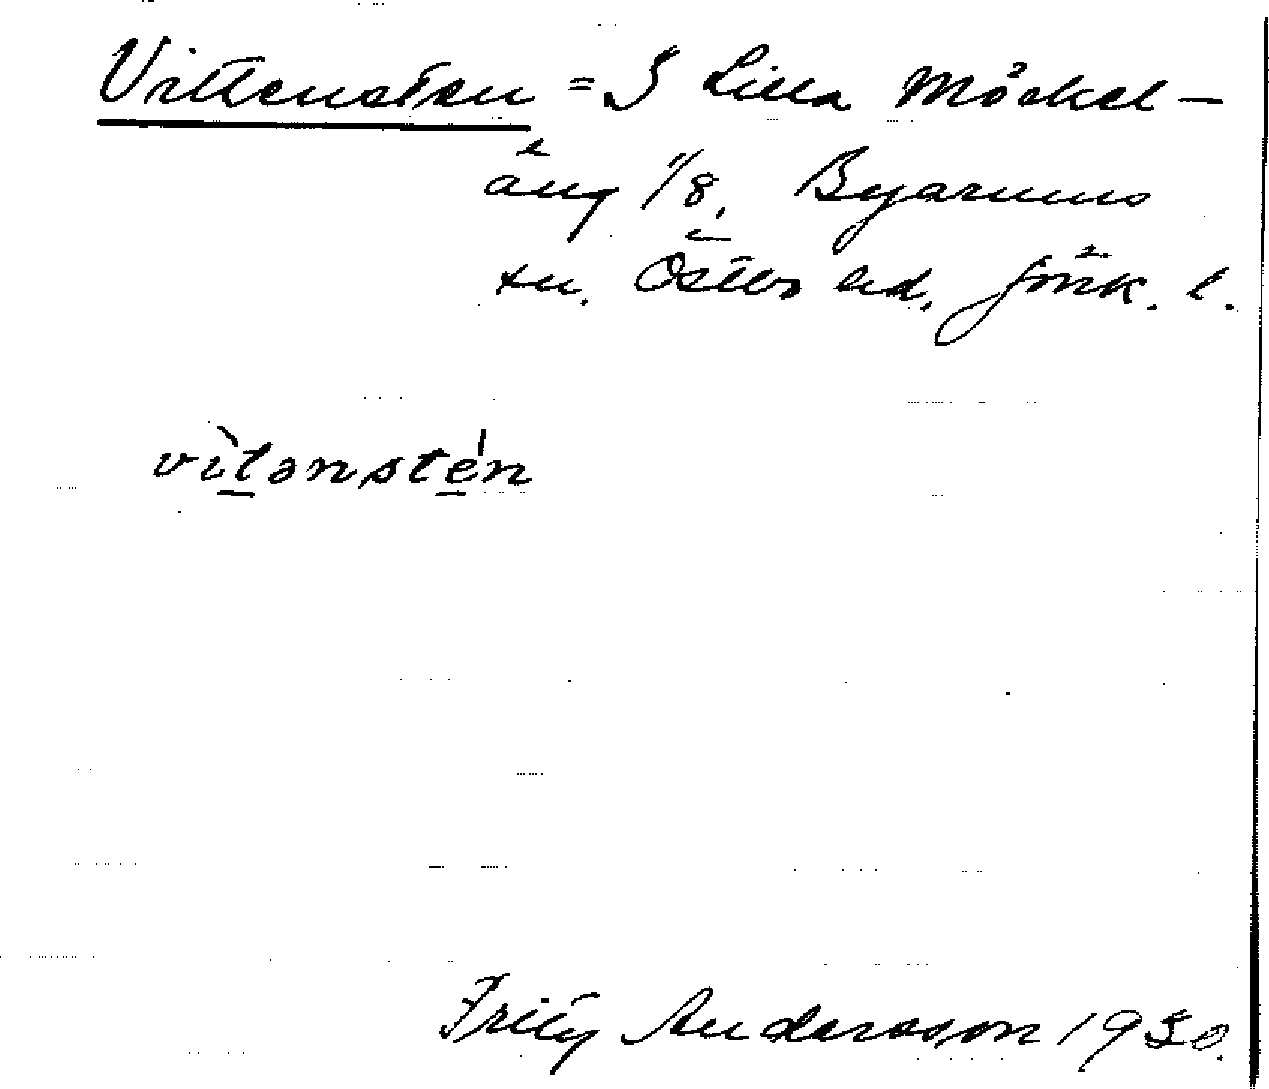 Vittensten = I Lilla Möckel-
äng 1/8, Byarums
sn. Östbo hd. Jönk. l.
vìtənstén
Fritz Andersson 1930.